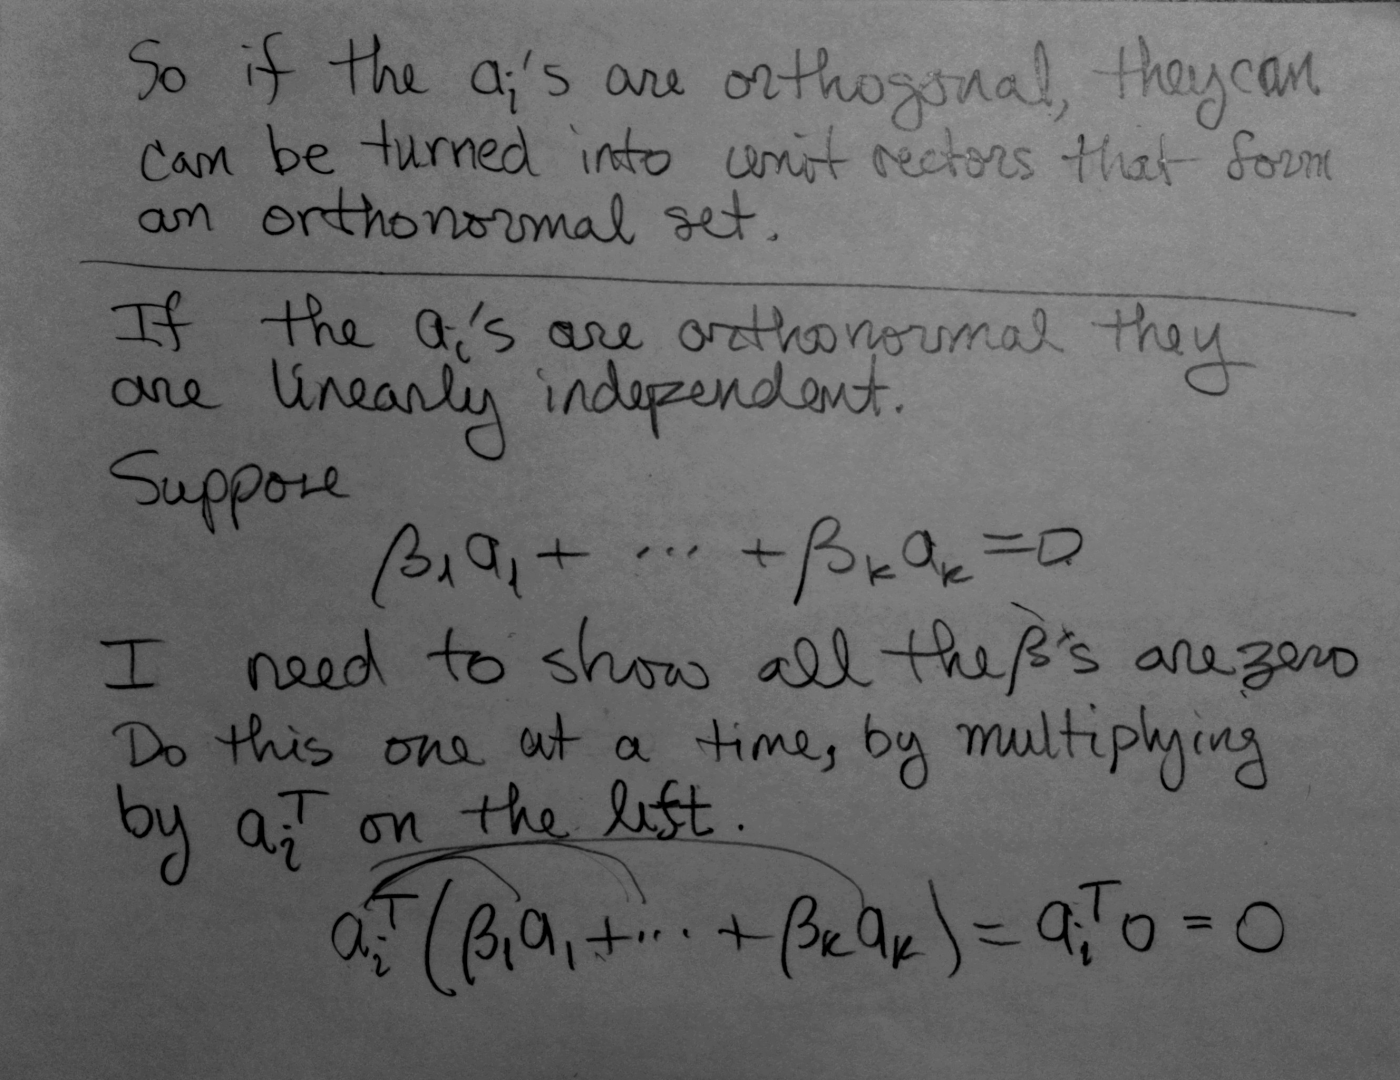 So if the aᵢ's are orthogonal, they can
can be turned into unit vectors that form
an orthonormal set.
If the aᵢ's are orthonormal they
are linearly independent.
Suppose
β₁a₁ + ... + βₖaₖ = 0
I need to show all the β's are zero
Do this one at a time, by multiplying
by aᵢᵀ on the left.
aᵢᵀ(β₁a₁ + ... + βₖaₖ) = aᵢᵀ0 = 0